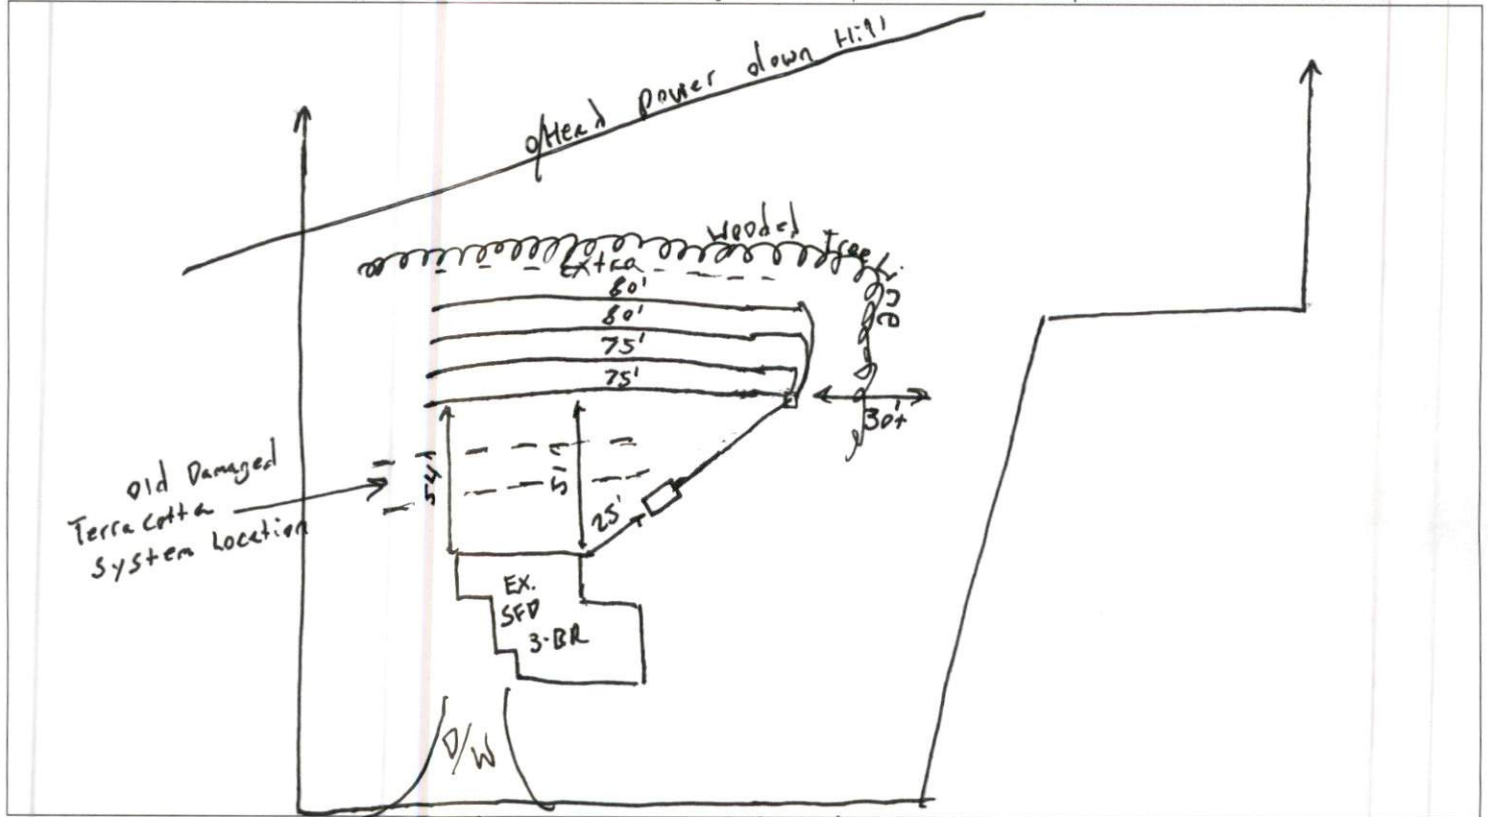 O/Head Power down Hill
Wooded Tree line
Extra
80'
80'
75'
75'
30'+
54'
51'
25'
Old Damaged
Terra Cotta
System Location
EX.
SFD
3-BR
D/W